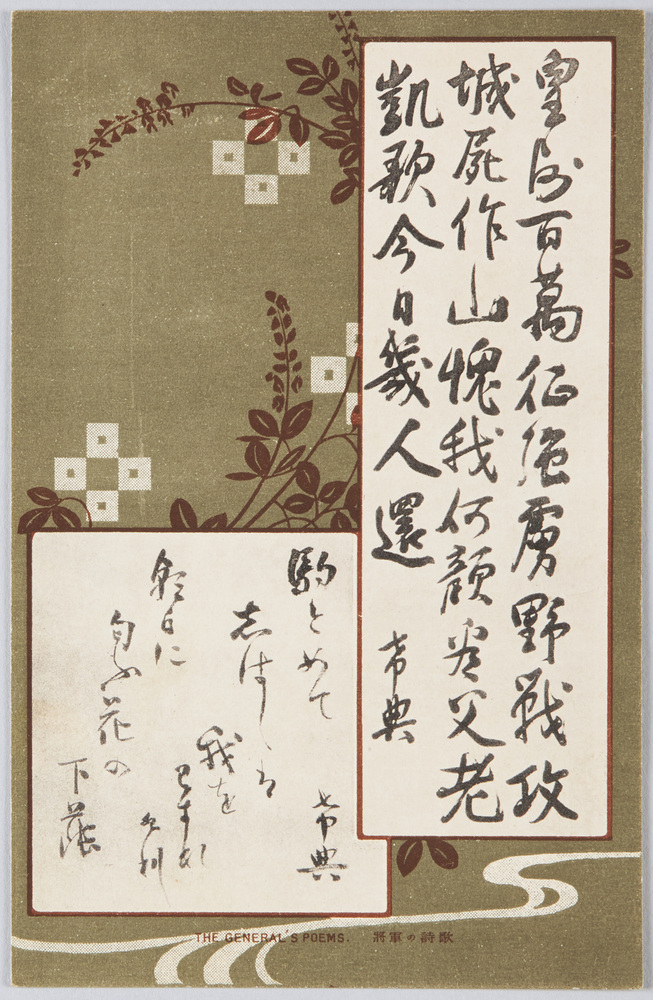 皇師百萬征強虜野戰攻
城屍作山愧我何顏看父老
凱歌今日幾人還 希典
駒とめて 希典
志はし
我を
わすれ
朝日に
匂ふ花の
下蔭
THE GENERAL'S POEMS. 將軍の詩歌